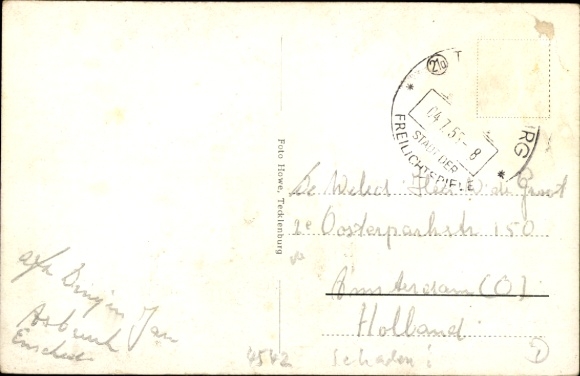 21a
T
RG
04.7.55-8
STADT DER
FREILICHTSPIELE
Foto Howe, Tecklenburg
De Weled. Heer W. de Groot
2e Oosterparkstr 150
Amsterdam (O)
Holland
Jan
Enschede
4542
Schaden:
D